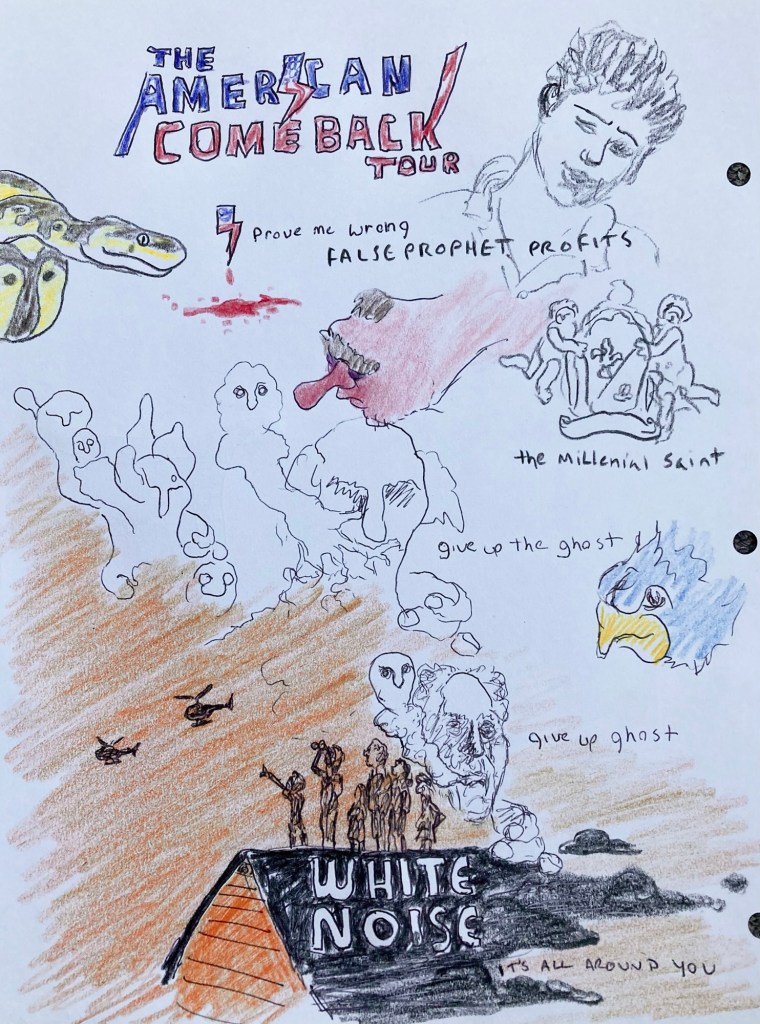 THE
AMERICAN
COMEBACK
TOUR
Prove me wrong
FALSE PROPHET PROFITS
the Millenial Saint
give up the ghost
give up ghost
WHITE
NOISE
IT'S ALL AROUND YOU